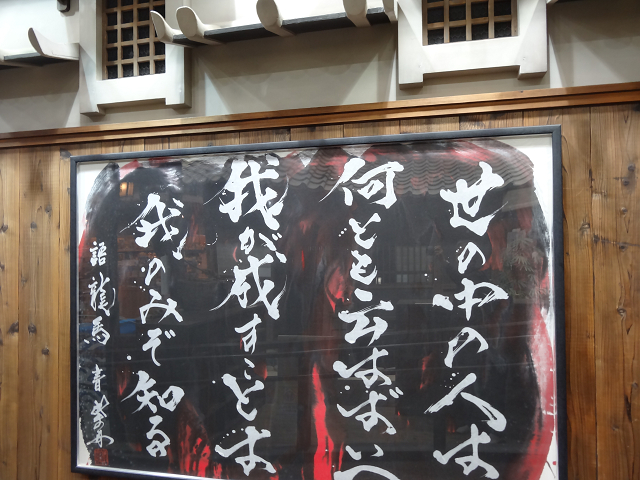 世の中の人は
何とも云はばいへ
我が成すことは
我のみぞ知る
語龍馬 青柴の舟